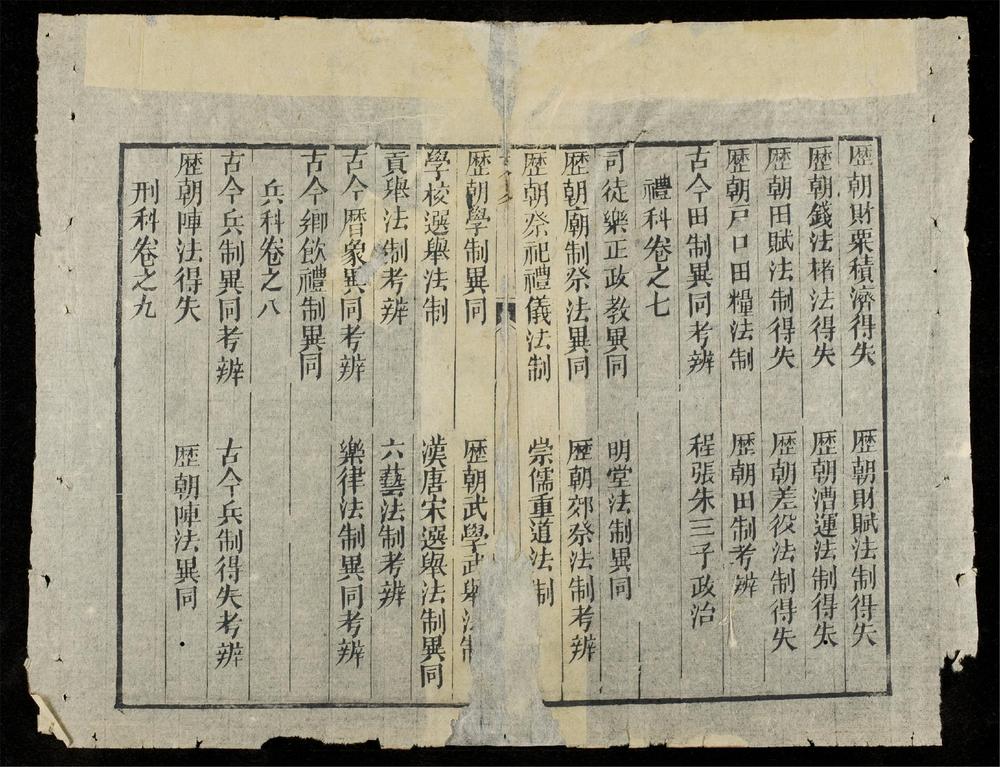 歷朝財粟積濟得失　歷朝財賦法制得失
歷朝錢法楮法得失　歷朝漕運法制得失
歷朝田賦法制得失　歷朝差役法制得失
歷朝戸口田糧法制　歷朝田制考辨
古今田制異同考辨　程張朱三子政治
禮科卷之七
司徒樂正政教異同　明堂法制異同
歷朝廟制祭法異同　歷朝郊祭法制考辨
歷朝祭祀禮儀法制　崇儒重道法制
歷朝學制異同　歷朝武學武舉法制
學校選舉法制　漢唐宋選舉法制異同
貢舉法制考辨　六藝法制考辨
古今曆象異同考辨　樂律法制異同考辨
古今鄉飲禮制異同
兵科卷之八
古今兵制異同考辨　古今兵制得失考辨
歷朝陣法得失　歷朝陣法異同
刑科卷之九